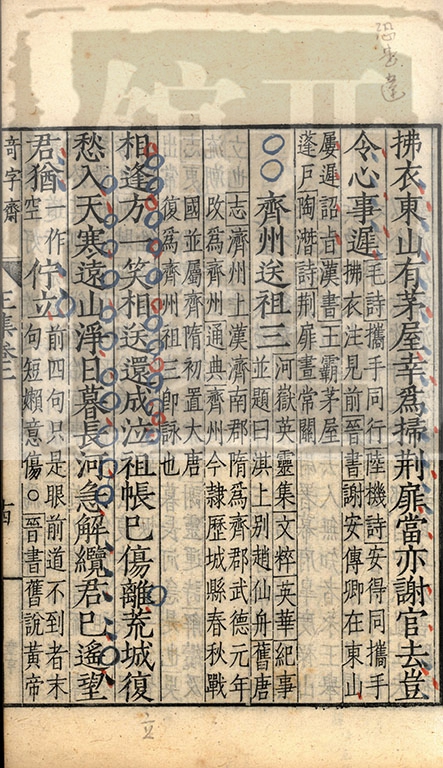 拂衣東山有茅屋幸爲掃荆扉當亦謝官去豈
令心事遲
毛詩攜手同行陸機詩安得同攜手
拂衣注見前晉書謝安傳卿在東山
屢遲詔旨漢書王霸茅屋
蓬戶陶潛詩荆扉晝常關
○○齊州送祖三
河嶽英靈集文粹英華紀事
並題曰淇上别趙仙舟舊唐
志齊州上漢濟南郡隋爲齊郡武德元年
改爲齊州通典齊州今隸歷城縣春秋戰
國並屬齊隋初置大唐
復爲齊州祖三卽詠也
相逢方一笑相送還成泣祖帳已傷離荒城復
愁入天寒遠山淨日暮長河急解纜君已遙望
君猶
一作
空
佇立
前四句只是眼前道不到者末
句短嬾意傷○晉書舊說黃帝
奇字齋
王集卷三